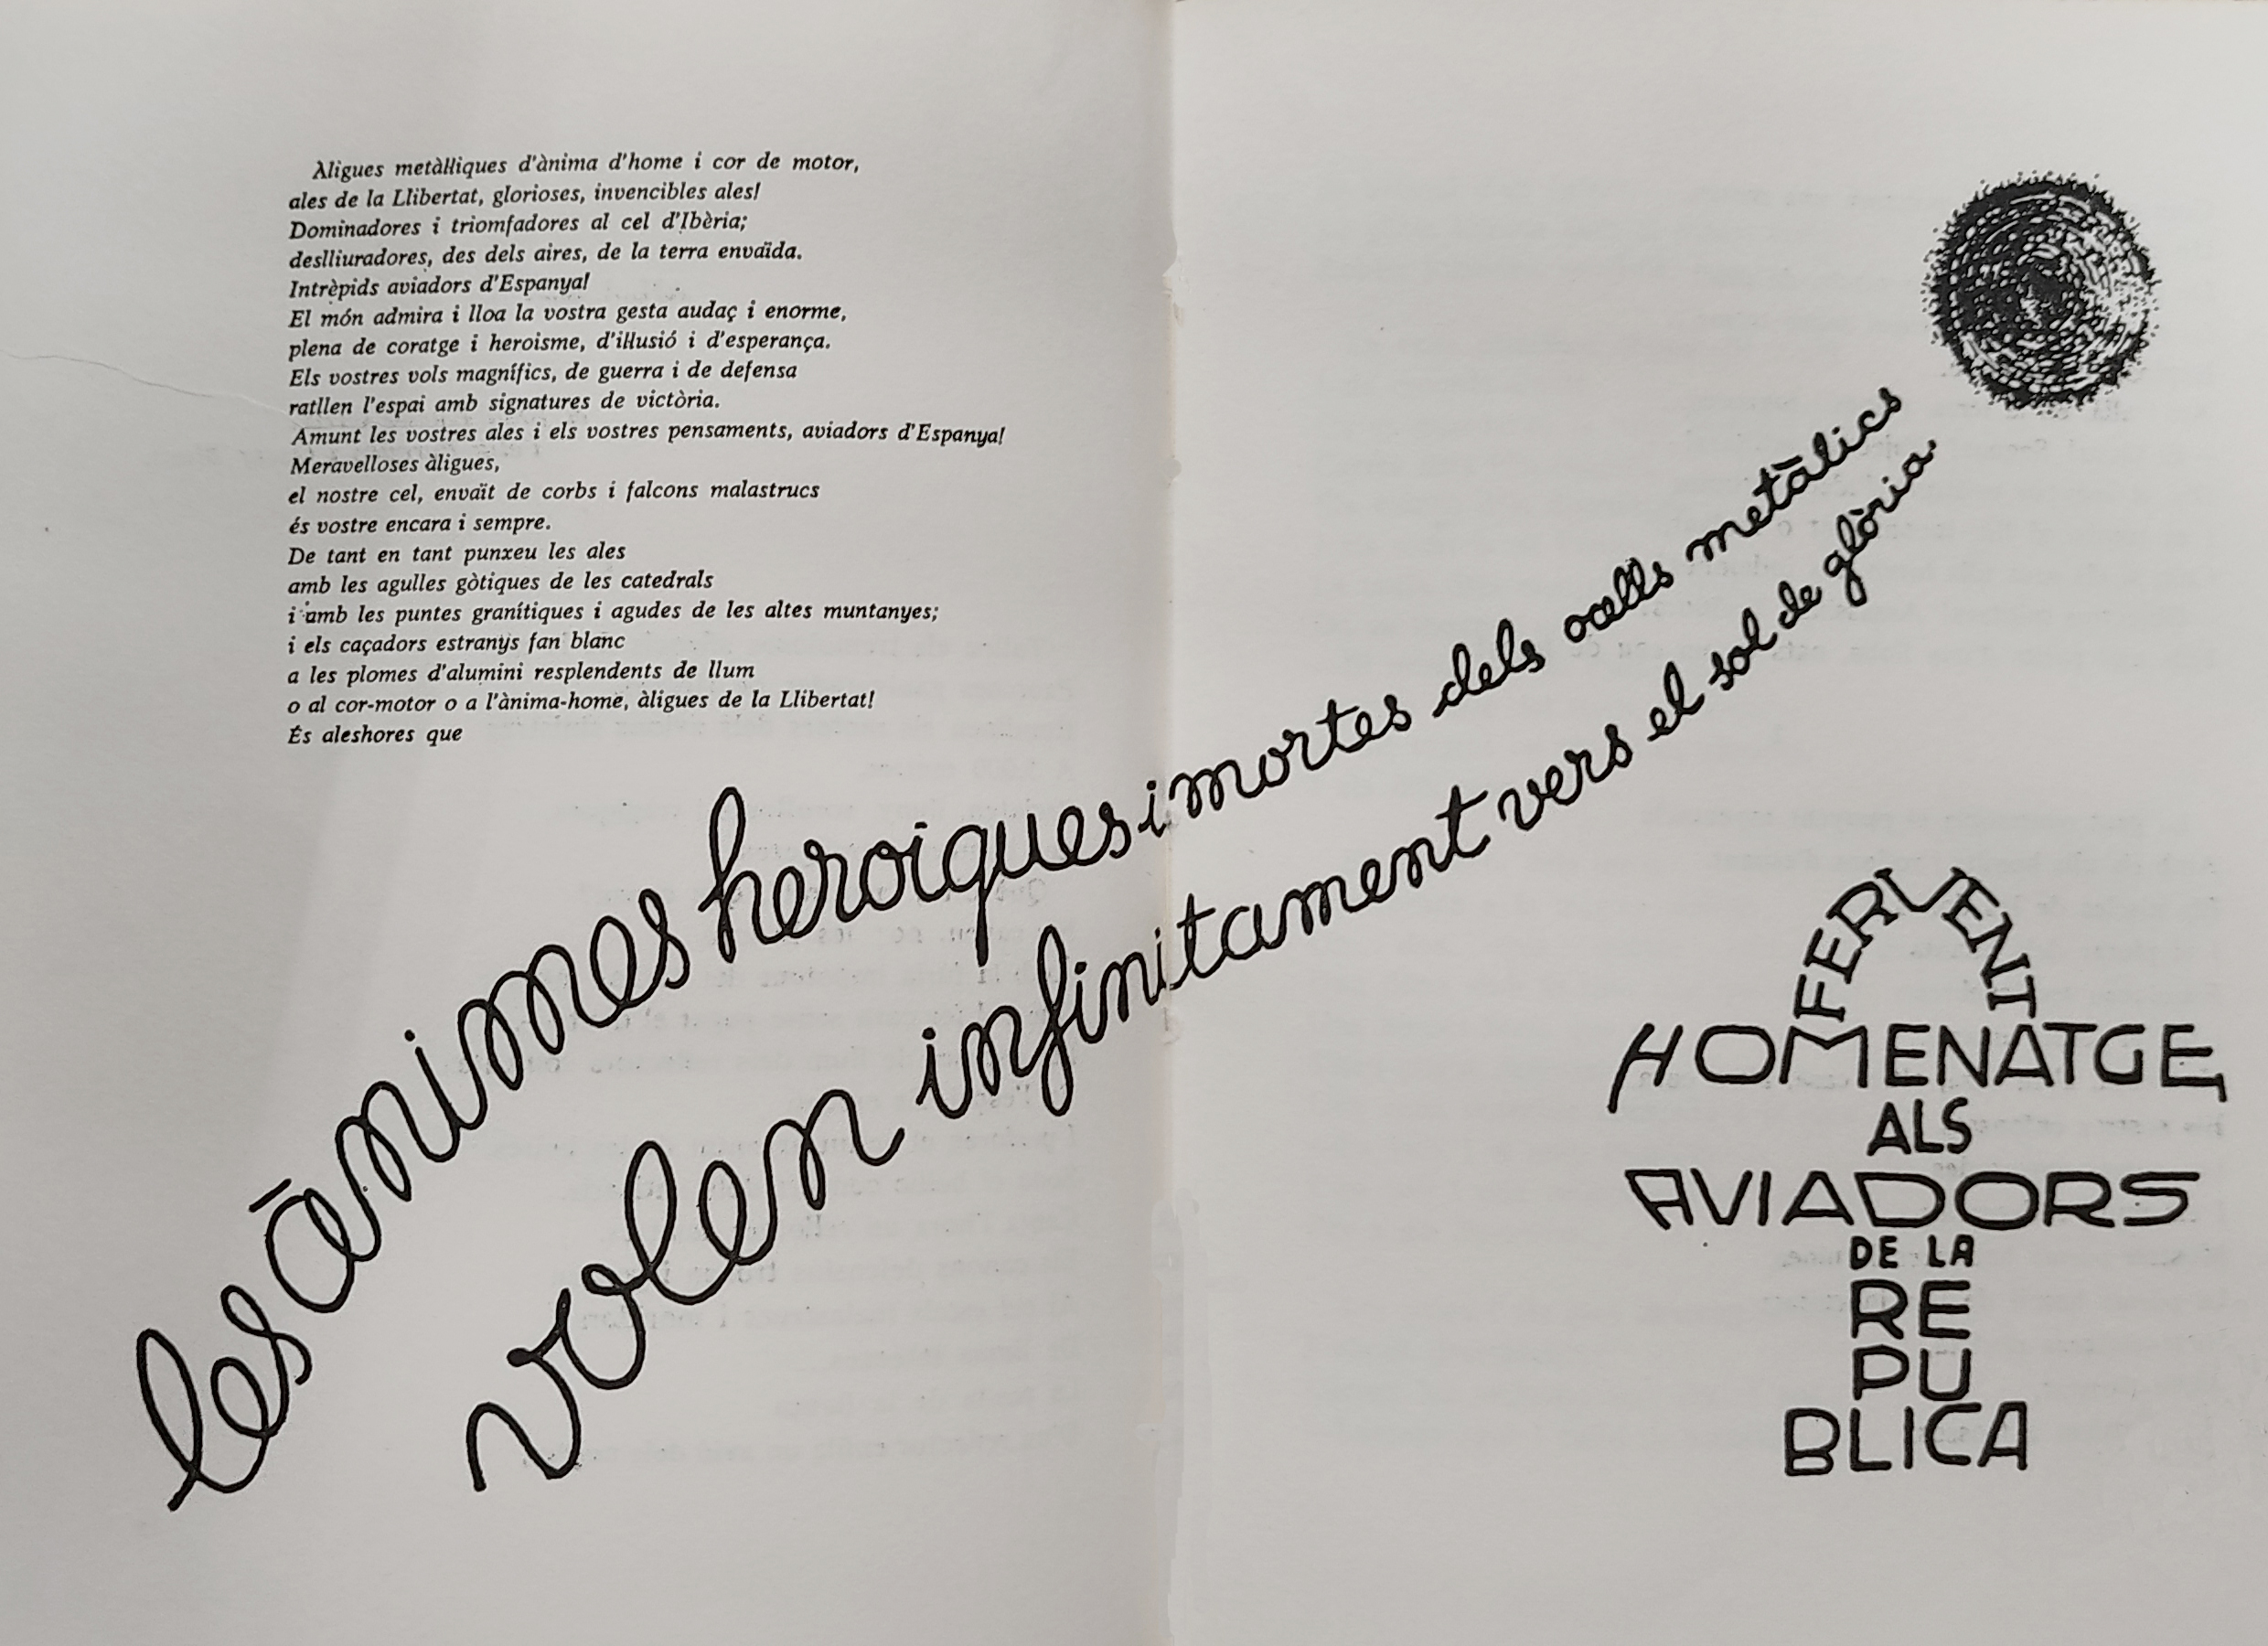 Àligues metàl·liques d'ànima d'home i cor de motor,
ales de la Llibertat, glorioses, invencibles ales!
Dominadores i triomfadores al cel d'Ibèria;
deslliuradores, des dels aires, de la terra envaïda.
Intrèpids aviadors d'Espanya!
El món admira i lloa la vostra gesta audaç i enorme,
plena de coratge i heroisme, d'il·lusió i d'esperança.
Els vostres vols magnífics, de guerra i de defensa
ratllen l'espai amb signatures de victòria.
Amunt les vostres ales i els vostres pensaments, aviadors d'Espanya!
Meravelloses àligues,
el nostre cel, envaït de corbs i falcons malastrucs
és vostre encara i sempre.
De tant en tant punxeu les ales
amb les agulles gòtiques de les catedrals
i amb les puntes granítiques i agudes de les altes muntanyes;
i els caçadors estranys fan blanc
a les plomes d'alumini resplendents de llum
o al cor-motor o a l'ànima-home, àligues de la Llibertat!
És aleshores que
les ànimes heroiques i mortes dels ocells metàlics
volen infinitament vers el sol de glòria
FERVENT
HOMENATGE
ALS
AVIADORS
DE LA
RE
PU
BLICA